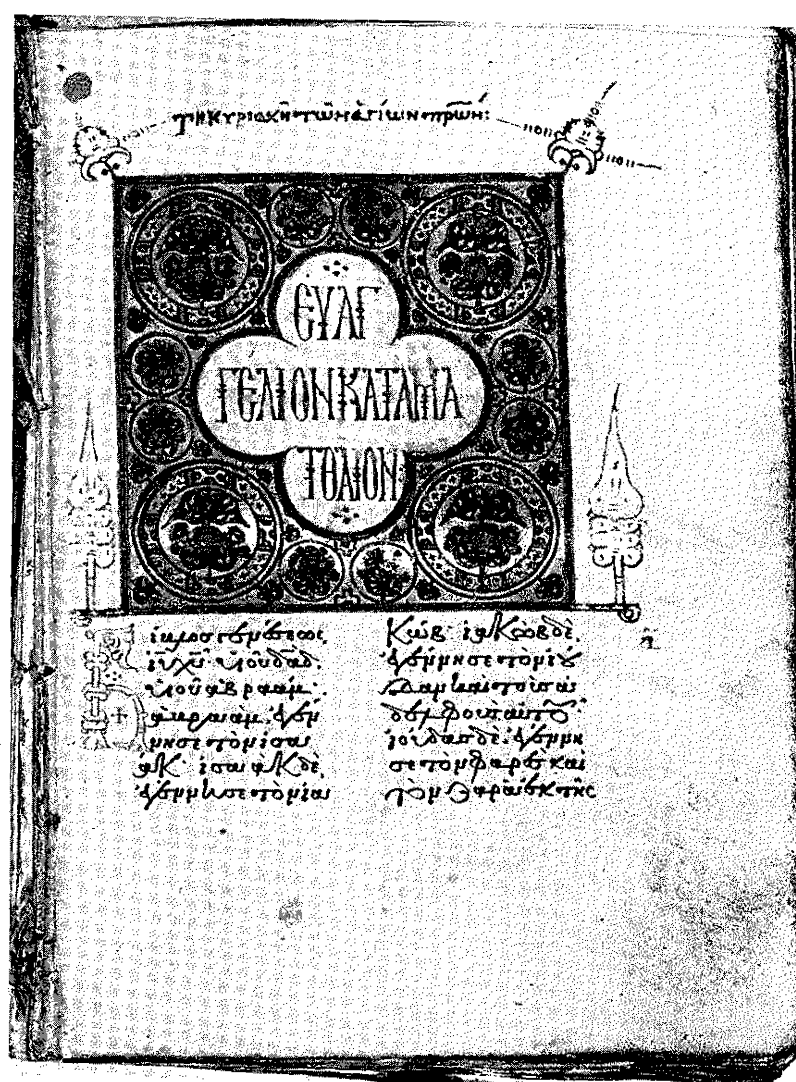 τῇ κυριακῇ τῶν ἁγίων πρων:
ΕΥΑΓ
ΓΕΛΙΟΝ ΚΑΤΑ ΜΑ
ΤΘΑΙΟΝ
Βίβλος γενέσεως
ἰυ χυ υἱοῦ δαδ.
υἱοῦ ἀβραάμ.
ἀβραὰμ ἐγέν
νησε τὸν ἰσα
ἀκ· ἰσαὰκ δὲ
ἐγέννησε τὸν ἰα
κώβ· ἰακὼβ δὲ
ἐγέννησε τὸν ἰού
δαν καὶ τοὺς ἀ
δελφοὺς αὐτοῦ·
ἰούδας δὲ ἐγέννη
σε τὸν φαρὲς καὶ
τὸν ζαρὰ ἐκ τῆς